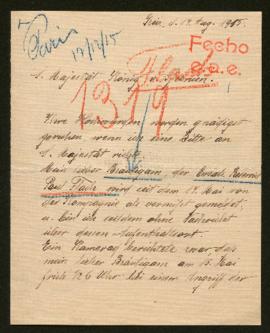 Paris
17/12/15
Wien, d. 12. Aug. 1915.
Fecho
e.a.e.
S. Majestät König v. Spanien.
1319
Flach
Eure
mögen gnädigst
geruhen, wenn ich eine Bitte an
S. Majestät richte.
Mein lieber Bräutigam der
Paul Flach wird seit dem 17. Mai von
der Kompagnie als vermißt gemeldet,
u. bin ich seitdem ohne Nachricht
über dessen Aufenthaltsort.
Ein Kamerad berichtete mir das
mein lieber Bräutigam am 15. Mai
früh 1/2 6 Uhr bei einem Angriff der